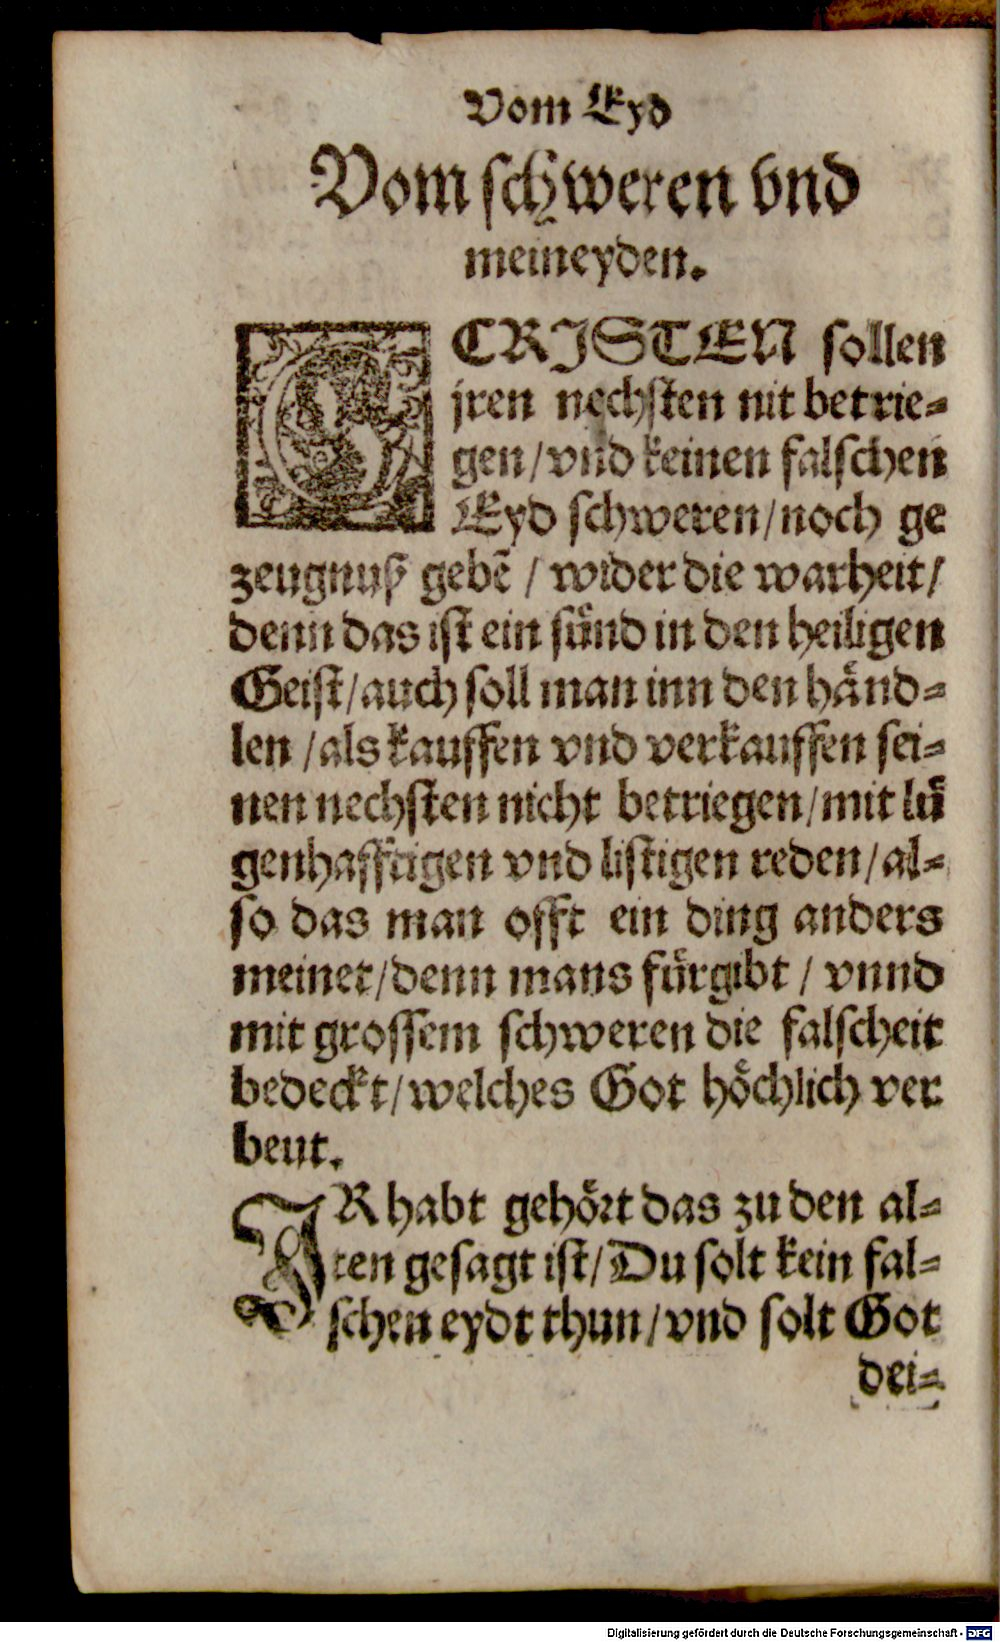 Vom Eyd
Vom schweren vnd
meineyden.
CCRJSTEN sollen
jren nechsten nit betrie⸗
gen/vnd keinen falschen
Eyd schweren/noch ge
zeugnuß gebẽ / wider die warheit/
denn das ist ein suͤnd in den heiligen
Geist/auch soll man inn den haͤnd⸗
len /als kauffen vnd verkauffen sei⸗
nen nechsten nicht betriegen/mit luͤ
genhafftigen vnd listigen reden/al⸗
so das man offt ein ding anders
meinet/denn mans fuͤrgibt / vnnd
mit grossem schweren die falscheit
bedeckt/welches Got hoͤchlich ver
beut.
JR habt gehoͤrt das zu den al⸗
ten gesagt ist/Du solt kein fal⸗
schen eydt thun/vnd solt Got
dei⸗
Digitalisierung gefördert durch die Deutsche Forschungsgemeinschaft - DFG